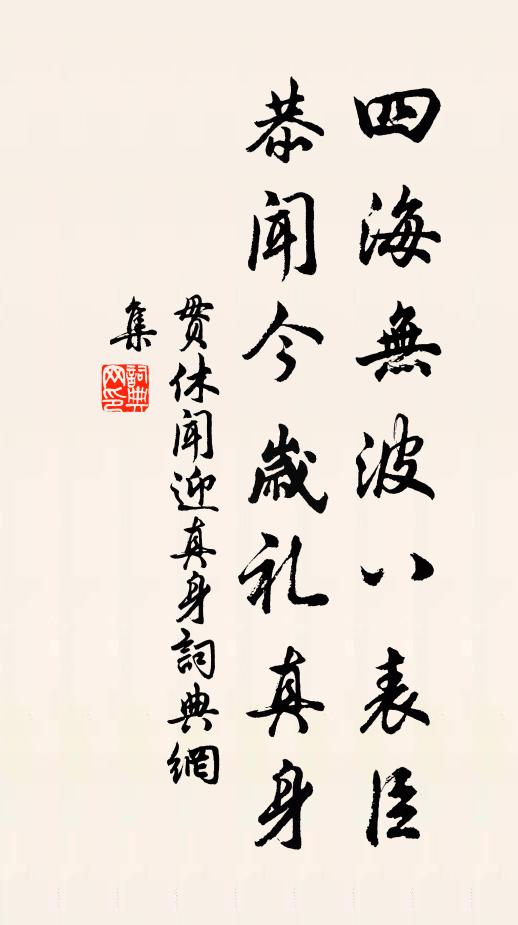 四海無波八表臣
恭聞今歲礼真身
貫休聞迎真身詞典網
集
詞典
网印